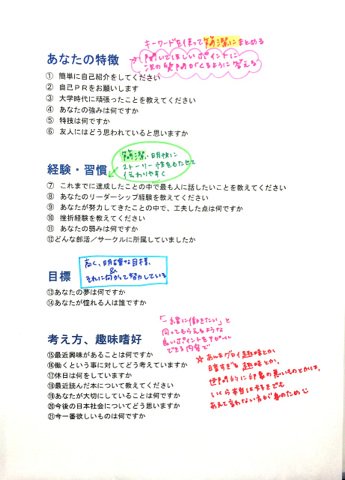 キーワードを使って簡潔にまとめる
あなたの特徴
聞いてほしいポイントに
次の質問がくるように答える
① 簡単に自己紹介をしてください
② 自己ＰＲをお願いします
③ 大学時代に頑張ったことを教えてください
④ あなたの強みは何ですか
⑤ 特技は何ですか
⑥ 友人にはどう思われていると思いますか
簡潔・明快に
ストーリー性をもたせて
伝わりやすく
経験・習慣
⑦ これまでに達成したことの中で最も人に話したいことを教えてください
⑧ あなたのリーダーシップ経験を教えてください
⑨ あなたが努力してきたことの中で、工夫した点は何ですか
⑩ 挫折経験を教えてください
⑪ あなたの弱みは何ですか
⑫どんな部活／サークルに所属していましたか
高く、明確な目標、
&
それに向かって努力している
目標
⑬あなたの夢は何ですか
⑭あなたが憧れる人は誰ですか
「一緒に働きたい」と
思ってもらえるような
良いポイントをアピール
できる内容で
考え方、趣味嗜好
⑮最近興味があることは何ですか
⑯働くという事に対してどう考えていますか
⑰休日は何をしていますか
⑱最近読んだ本について教えてください
⑲あなたが大切にしていることは何ですか
⑳今後の日本社会についてどう思いますか
㉑今一番欲しいものは何ですか
★あまりグロイ趣味とか
暗すぎる趣味とか、
世間的に印象の良いものとかは、
いくら本当に好きでも
あえて言わない方が身のため